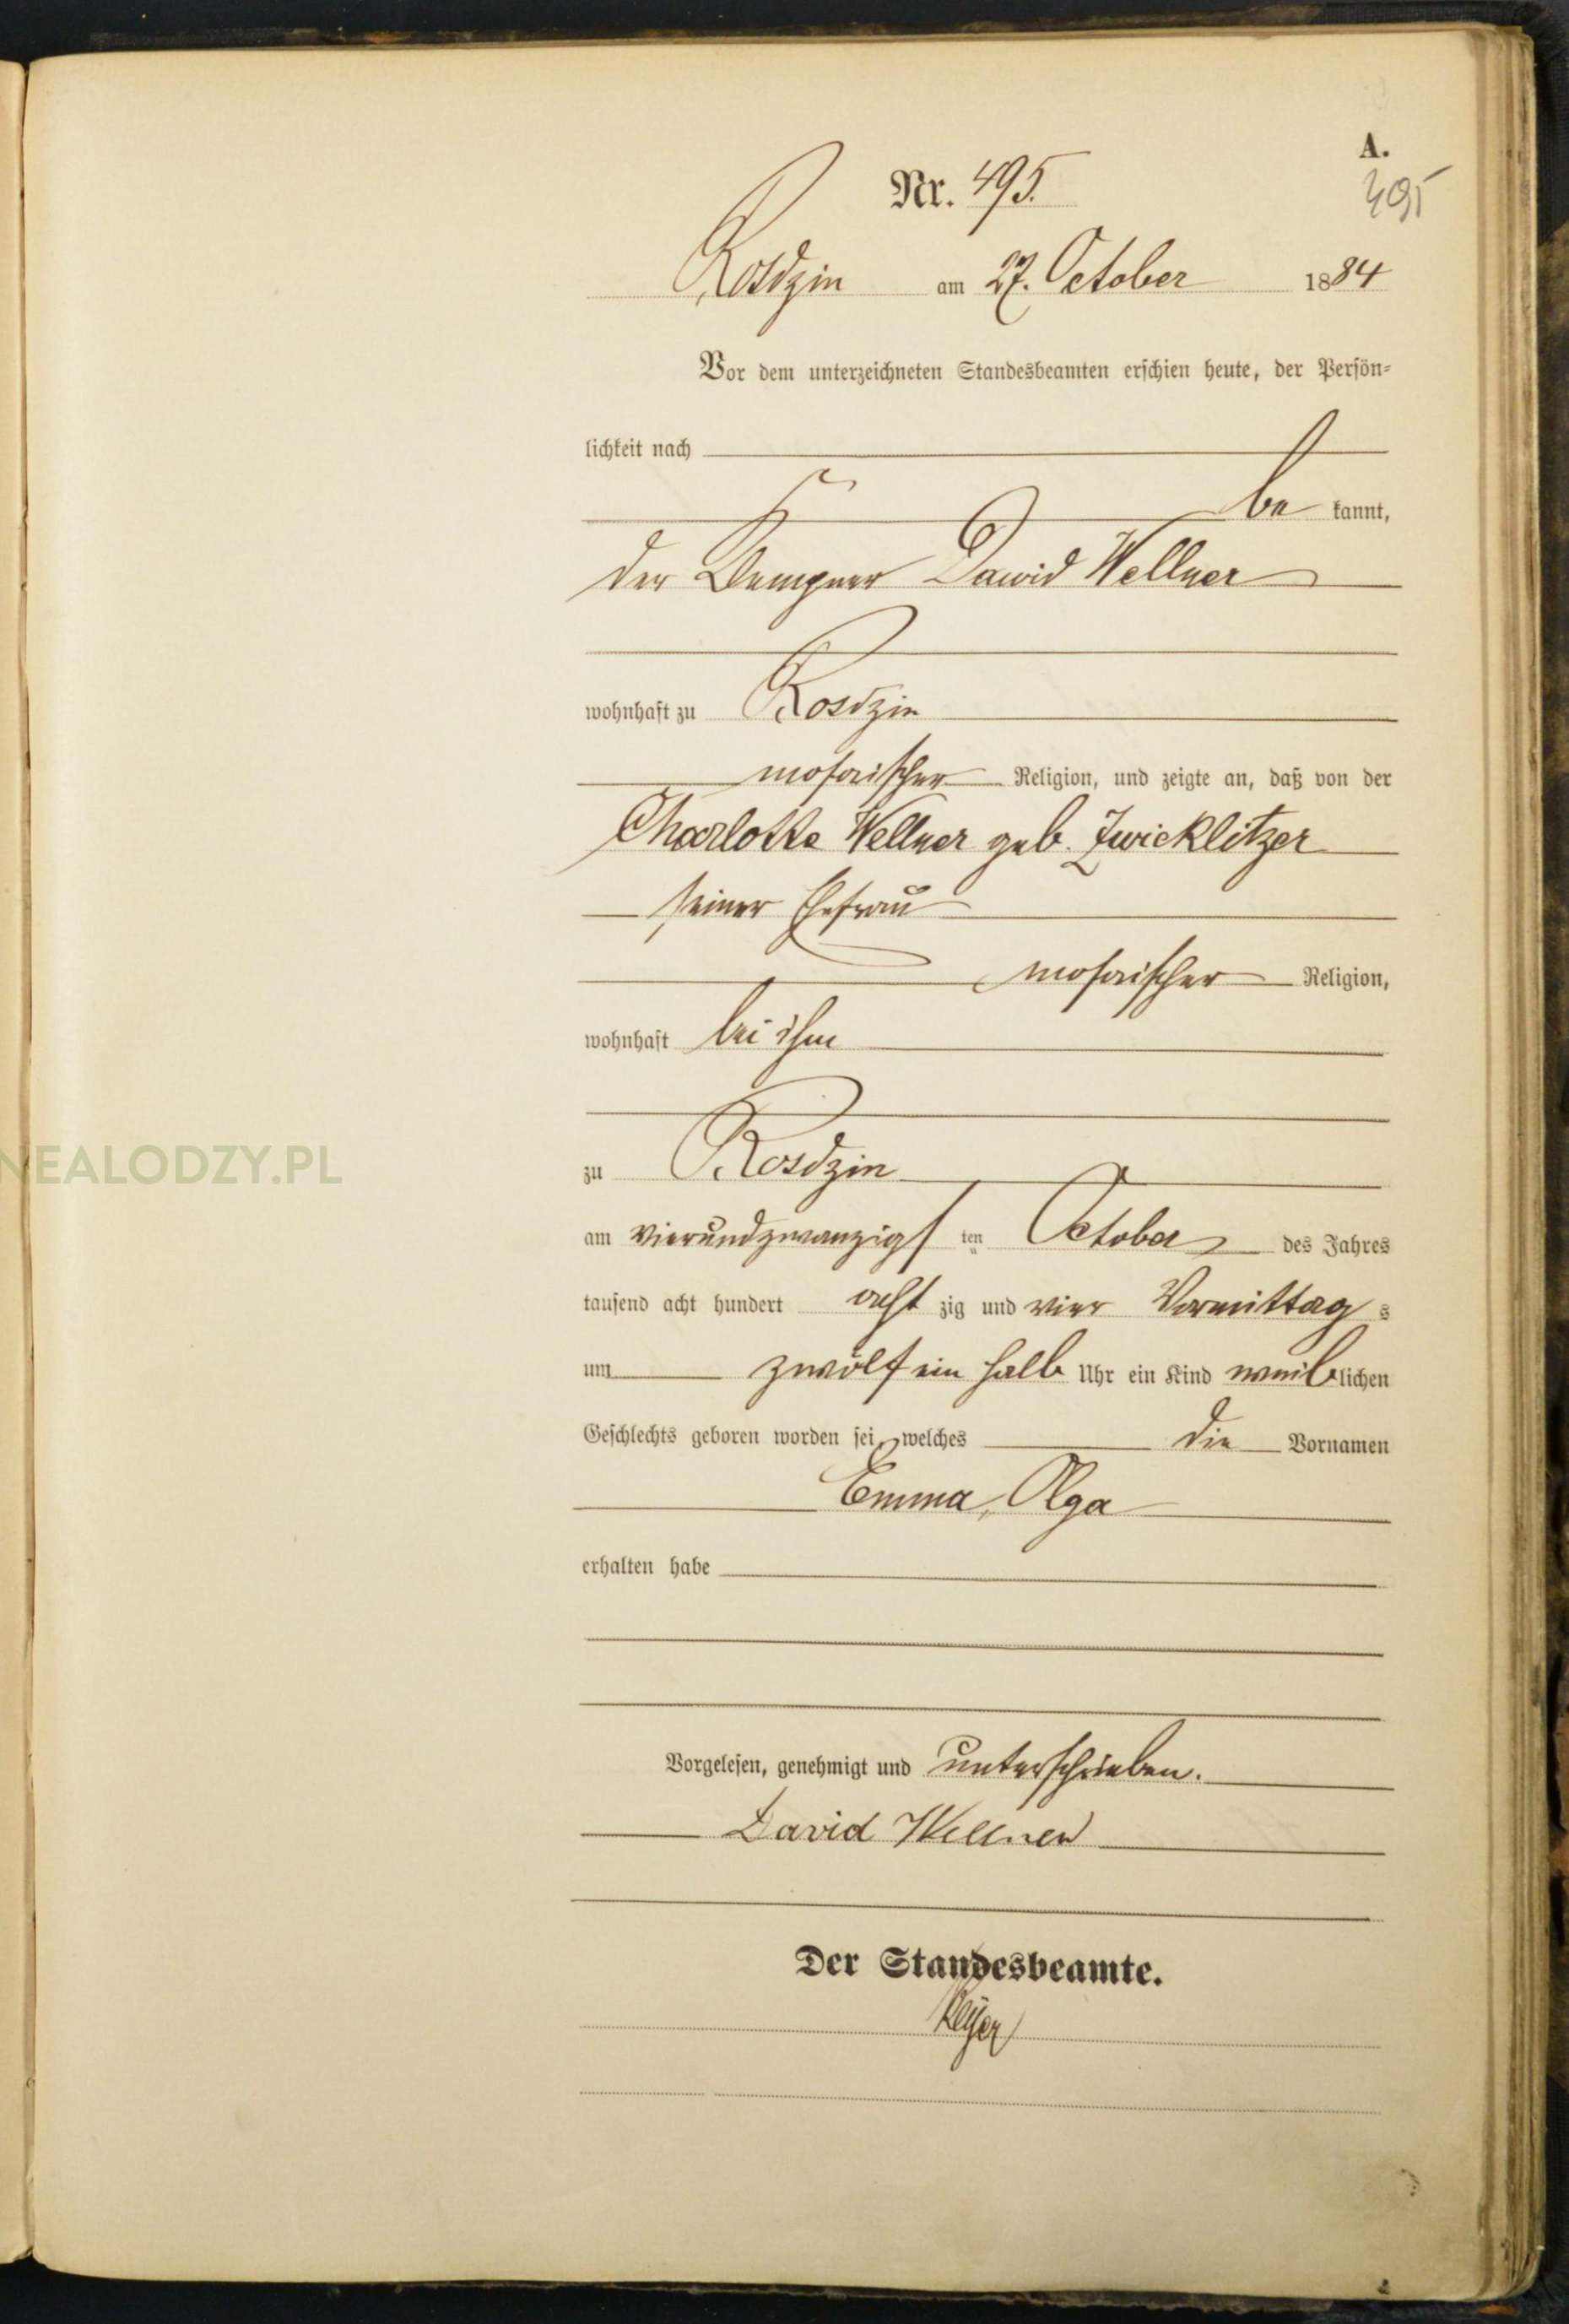 A.
Nr. 495.
495
Rosdzin am 27. October 1884
Vor dem unterzeichneten Standesbeamten erschien heute, der Persön-
lichkeit nach
be kannt,
der Dawid Wellner
wohnhaft zu Rosdzin
mosaischer Religion, und zeigte an, daß von der
Charlotte Wellner geb. Zwicklitzer
seiner Ehefrau
mosaischer Religion,
wohnhaft bei ihm
NEALODZY.PL
zu Rosdzin
am vierundzwanzigs ten October des Jahres
tausend acht hundert acht zig und vier Vormittag s
um zwölf ein halb Uhr ein Kind weib lichen
Geschlechts geboren worden sei, welches die Vornamen
Emma, Olga
erhalten habe
Vorgelesen, genehmigt und unterschrieben.
David Wellner
Der Standesbeamte.